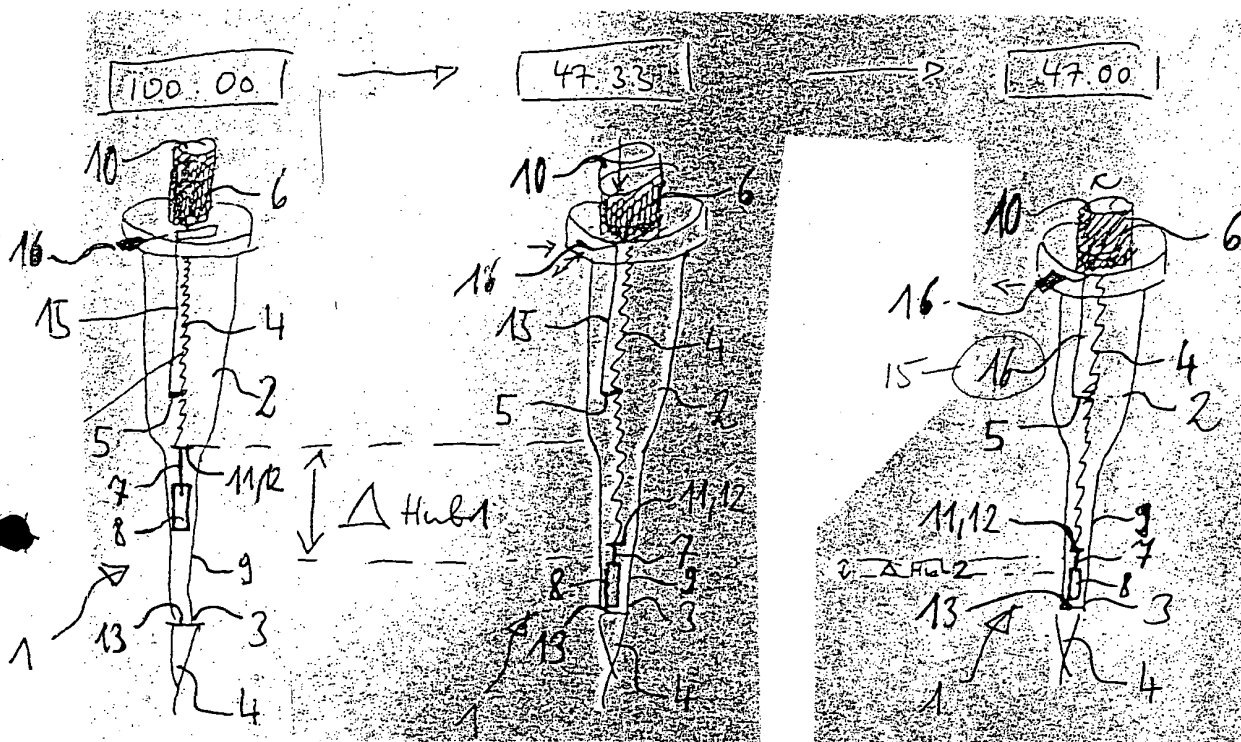 100.00 47.33 47.00
10 6 16 15 4 2 5 7 11,12 8 9 1 13 3 4
Δ Hub1
10 6 16 15 4 2 5 11,12 7 8 9 3 13 1 4
10 6 16 15 16 4 2 5 11,12 9 7
Δ Hub2
8 13 3 1 4